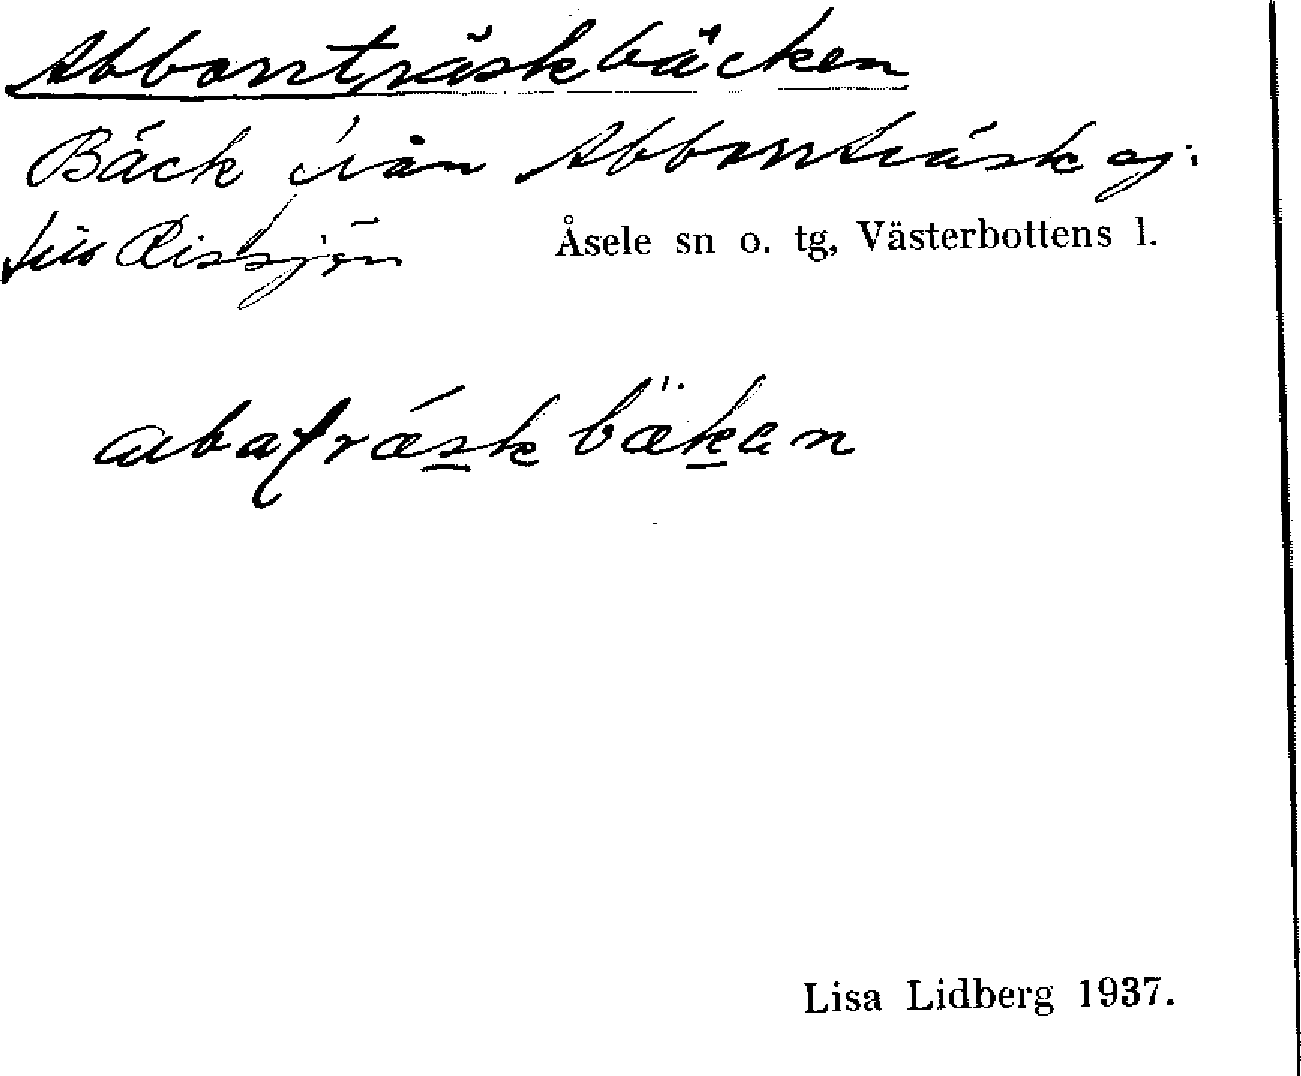 Abborrträskbäcken
Bäck från Abborrträsk oj.
till Rissjön
Åsele sn o. tg, Västerbottens l.
abaʈræskbækan
Lisa Lidberg 1937.